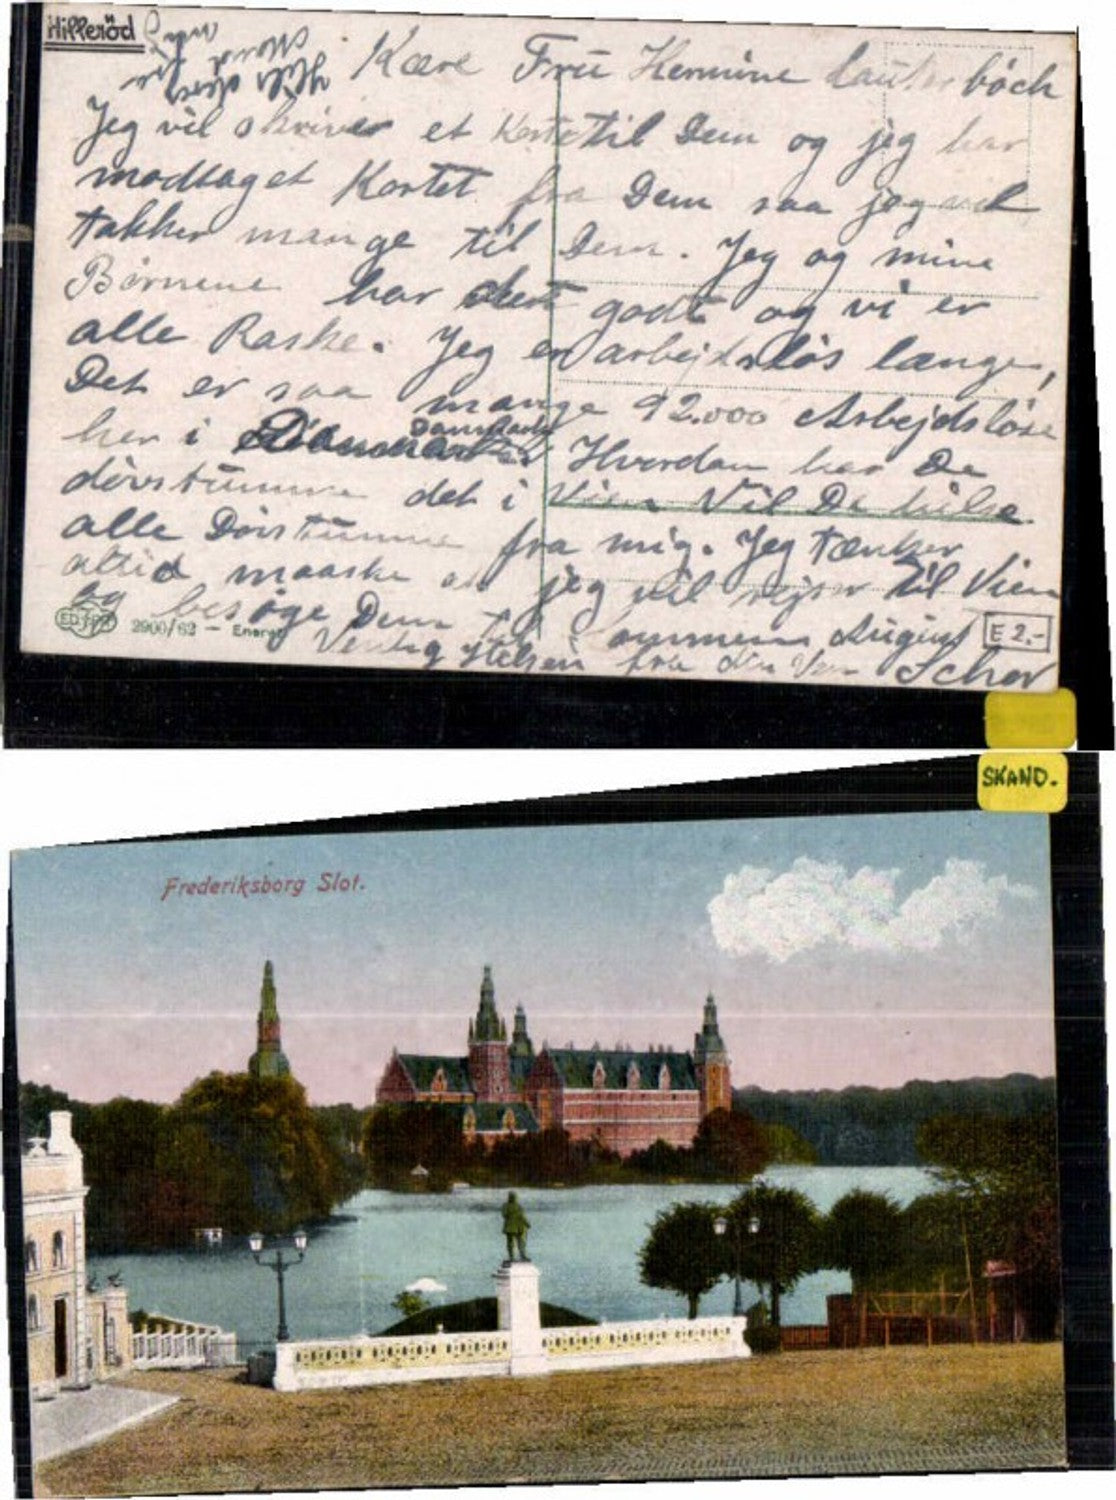 Hilleröd
Kære Frü Hermine Lauterbach
Jeg vil skriver et Kort til Dem og jeg har
modtaget Kortet fra Dem saa jeg vil
takker mange til Dem. Jeg og mine
Börnene har det godt og vi er
alle Raske. Jeg er arbejdslös længe,
Det er saa mange 92.000 Arbejdslöse
Danmark
her i Hvordan har De
dövstumme det i Wien Vil De hilse
alle Dövstumme fra mig. Jeg tænker
altid maaske at jeg vil rejser til Wien
og besöge Dem August
Venlig fra din Ven
2900/62 - Energi
E 2.-
SKAND.
Frederiksborg Slot.